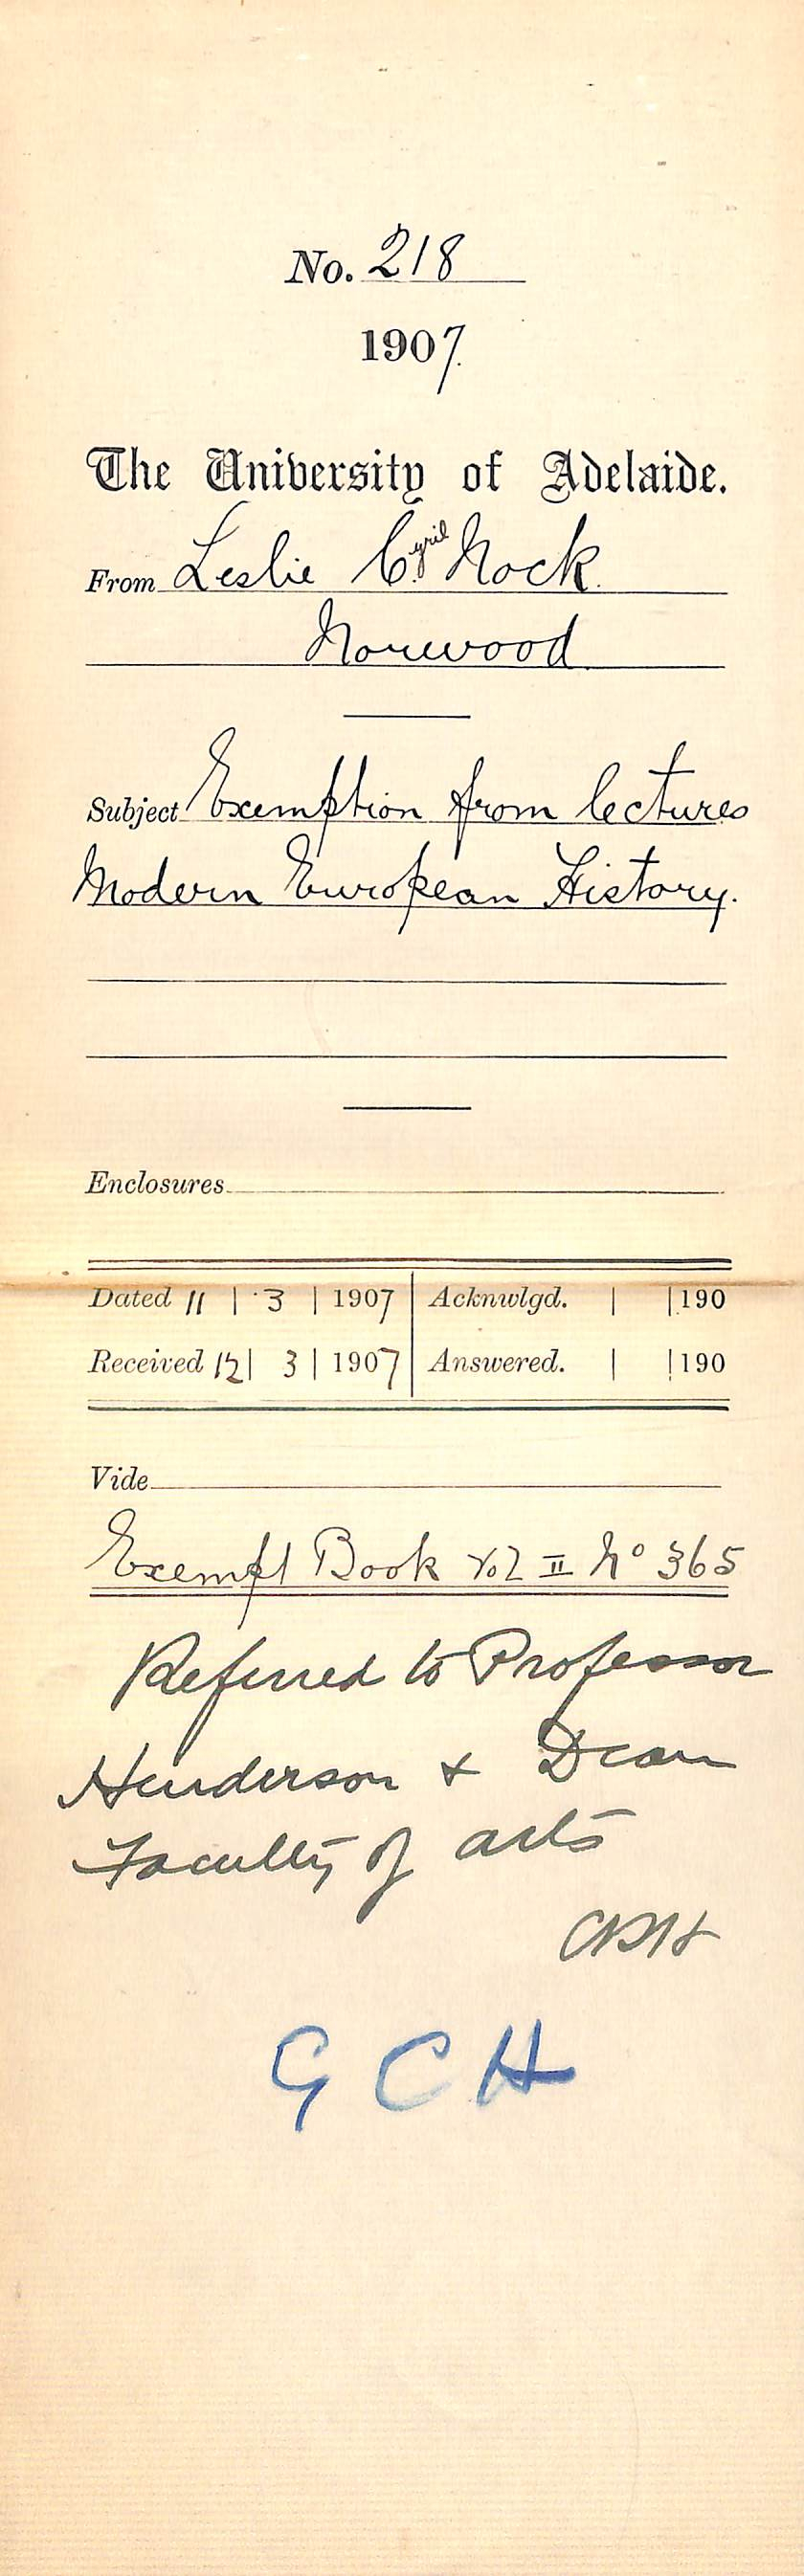 No. 218
1907.
The University of Adelaide.
From Leslie Cyril Nock.
Norwood
Subject Exemption from lectures
Modern European History.
Enclosures
Dated 11 | 3 | 1907 | Acknwlgd. | | 190
Received 12 | 3 | 1907 | Answered. | | 190
Vide
Exempt Book Vol II No 365
Referred to Professor
Henderson & Dean
Faculty of arts
G C H